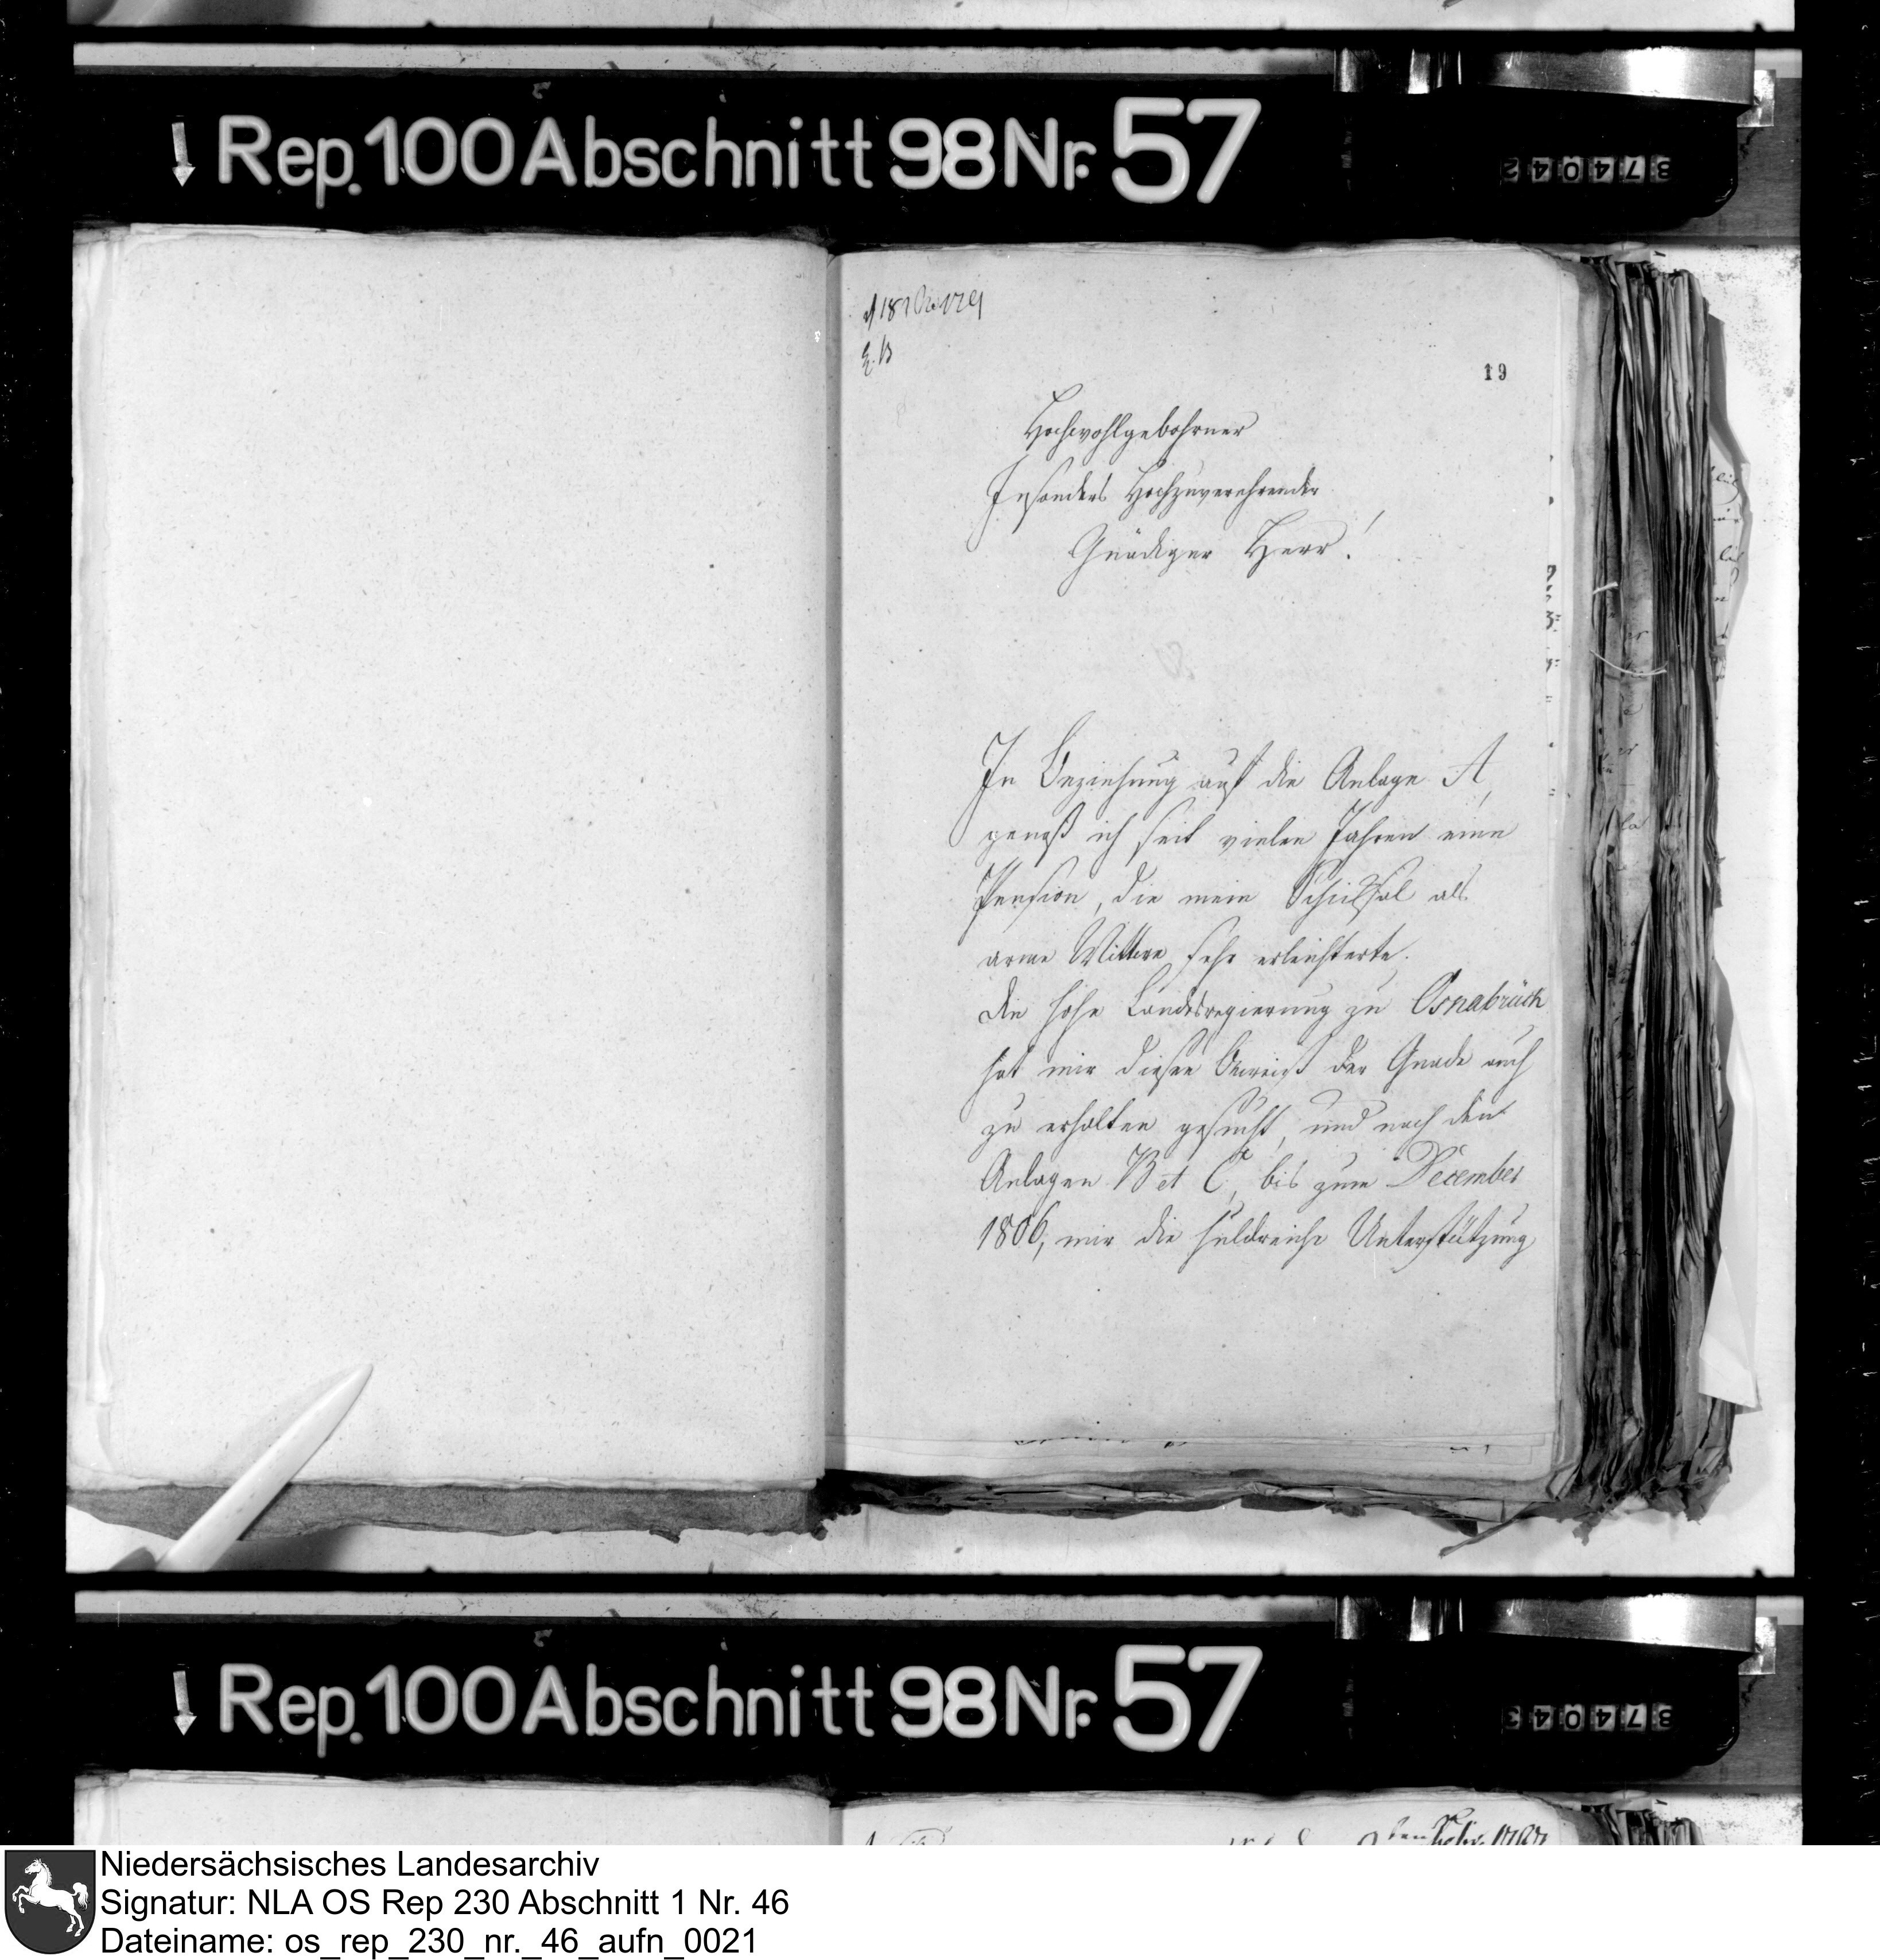 Rep. 100 Abschnitt 98 Nr. 57
374042
19
Hochwohlgebohrner
Insonders Hochzuverehrender
Gnädiger Herr!
In Beziehung auf die Anlage A,
genoß ich seit vielen Jahren eine
Pension, die mein Schicksal als
arme Wittwe sehr erleichterte.
Die hohe Landesregierung zu Osnabrück
hat mir diesen Beweiß der Gnade auch
zu erhalten gesucht, und nach den
Anlagen B et C, bis zum December
1806, mir die huldreiche Unterstützung
Rep. 100 Abschnitt 98 Nr. 57
374043
Niedersächsisches Landesarchiv
Signatur: NLA OS Rep 230 Abschnitt 1 Nr. 46
Dateiname: os_rep_230_nr._46_aufn_0021